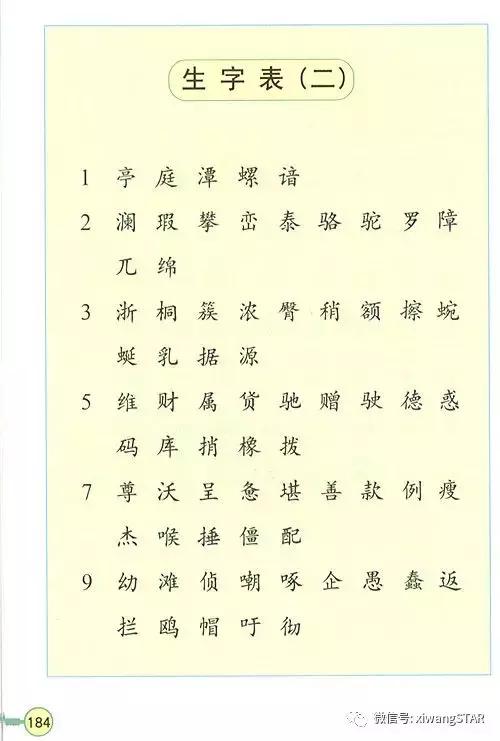 生字表(二)
1 亭 庭 潭 螺 谙
2 澜 瑕 攀 峦 泰 骆 驼 罗 障
兀 绵
3 浙 桐 簇 浓 臀 稍 额 擦 蜿
蜒 乳 据 源
5 维 财 属 货 驰 赠 驶 德 惑
码 库 捎 橡 拨
7 尊 沃 呈 惫 堪 善 款 例 瘦
杰 喉 捶 僵 配
9 幼 滩 侦 嘲 啄 企 愚 蠢 返
拦 鸥 帽 吁 彻
184
微信号: xiwangSTAR